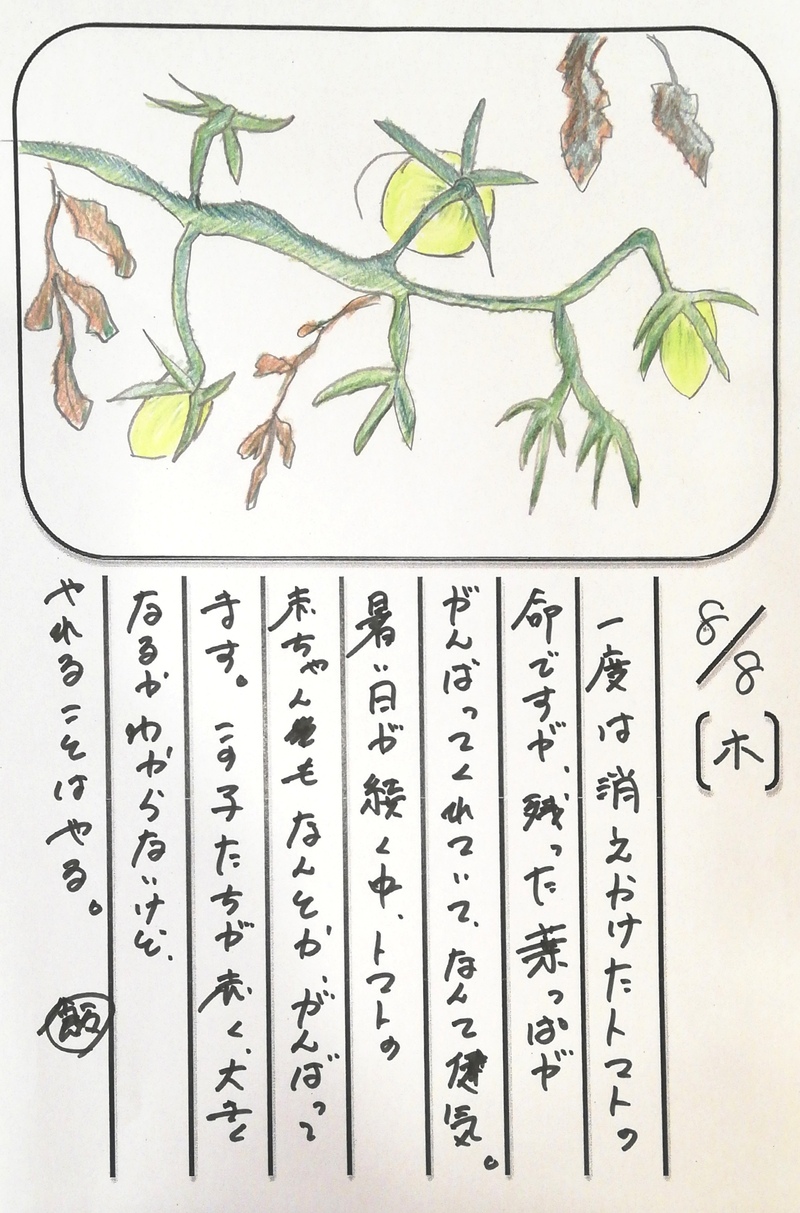 8/8(木)
一度は消えかけたトマトの
命ですが、残った葉っぱが
がんばってくれていて、なんて健気。
暑い日が続く中、トマトの
赤ちゃんもなんとか、がんばって
ます。この子たちが赤く、大きく
なるかわからないけど、
やれることはやる。
飯